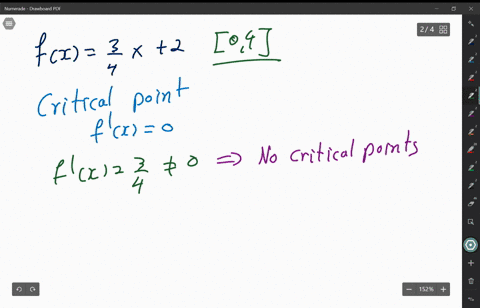 Numerade - Drawboard PDF
2 / 4
f(x) = 3/4 x + 2 [0,4]
Critical point
f'(x) = 0
f'(x) = 3/4 ≠ 0 ⇒ No critical points
152%